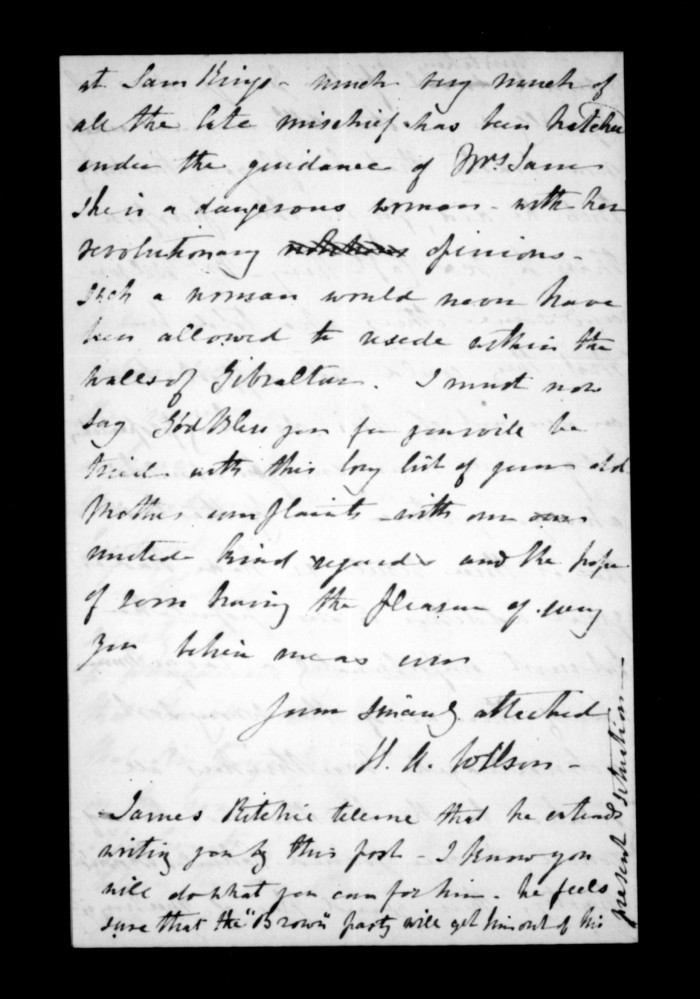 at Sam Kings - much very much of
all the late mischief has been hatched
under the guidance of Mrs Sam
She is a dangerous woman - with her
revolutionary opinions -
Such a woman would never have
been allowed to reside within the
walls of Gibraltar. I must now
say God Bless you for you will be
tired with this long list of your old
Mothers complaints - with our
united kind regards and the hope
of soon having the pleasure of seeing
you believe me as ever
Your sincerely attached
H. A. Wilson -
James Ritchie tells me that he intends
writing you by this post - I know you
will do what you can for him - he feels
sure that the "Brown" party will get him out of his
present situation -